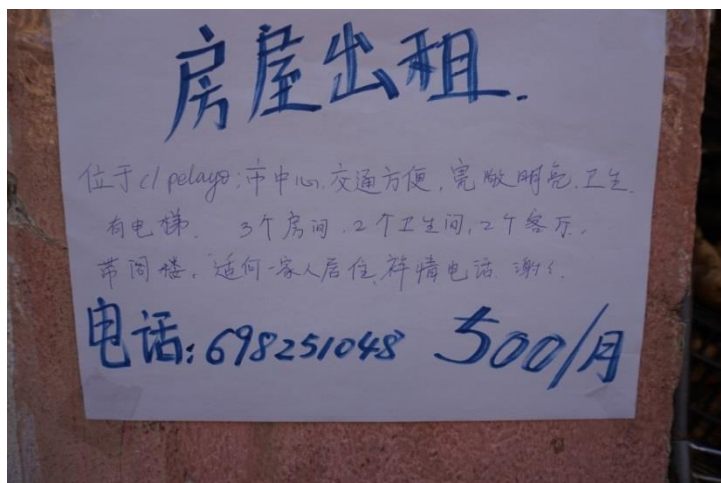 房屋出租.
位于c/ pelayo;市中心,交通方便,宽敞明亮.卫生.
有电梯. 3个房间.2个卫生间,2个客厅.
带阁楼,适何一家人居住,祥情电话.谢谢.
电话:698251048 500/月